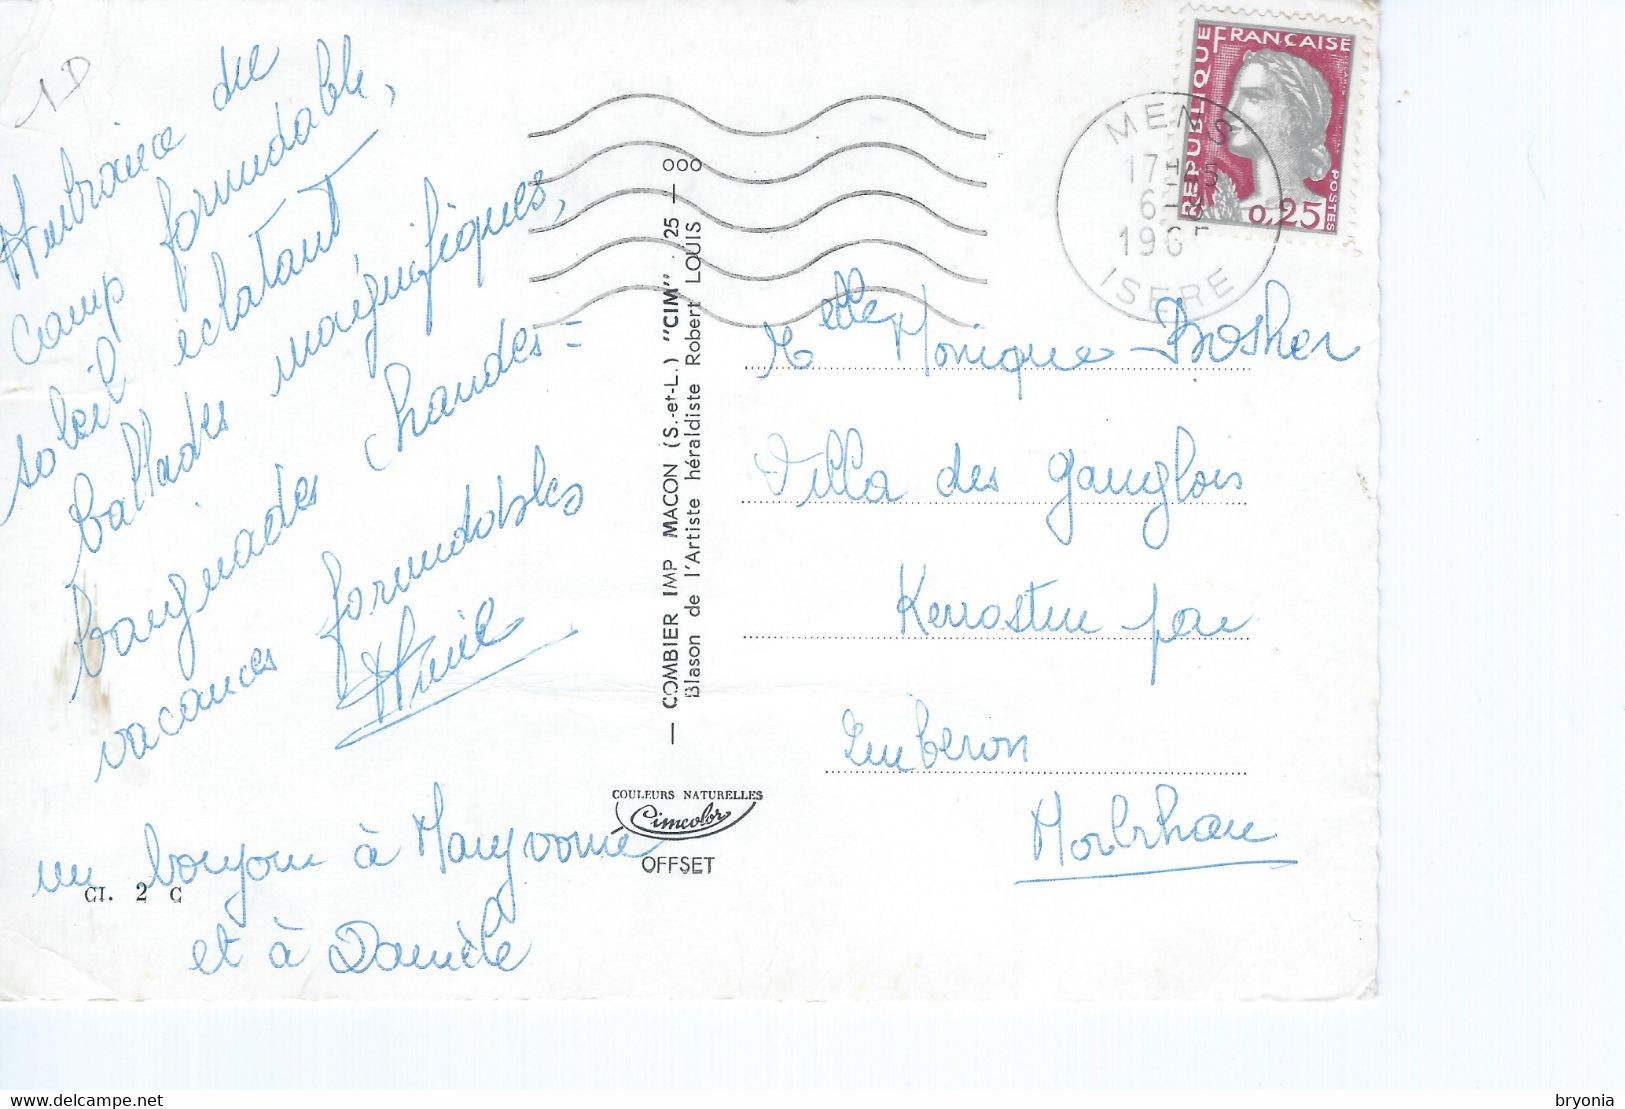 1D
Ambiance du
camp formidable,
soleil éclatant
ballades magnifiques,
baignades chaudes =
vacances formidables
un bonjour à Maryvonne
et à Danièle
CI. 2 C
— COMBIER IMP MACON (S.-et-L.) "CIM" . 25 — ooo
Blason de l'Artiste héraldiste Robert LOUIS
COULEURS NATURELLES
Cimcolor
OFFSET
RÉPUBLIQUE FRANÇAISE
POSTES
0,25
MENS
ISERE
Melle Monique Bosher
Villa des
Kerrostin par
Morbihan
bryonia
delcampe.net